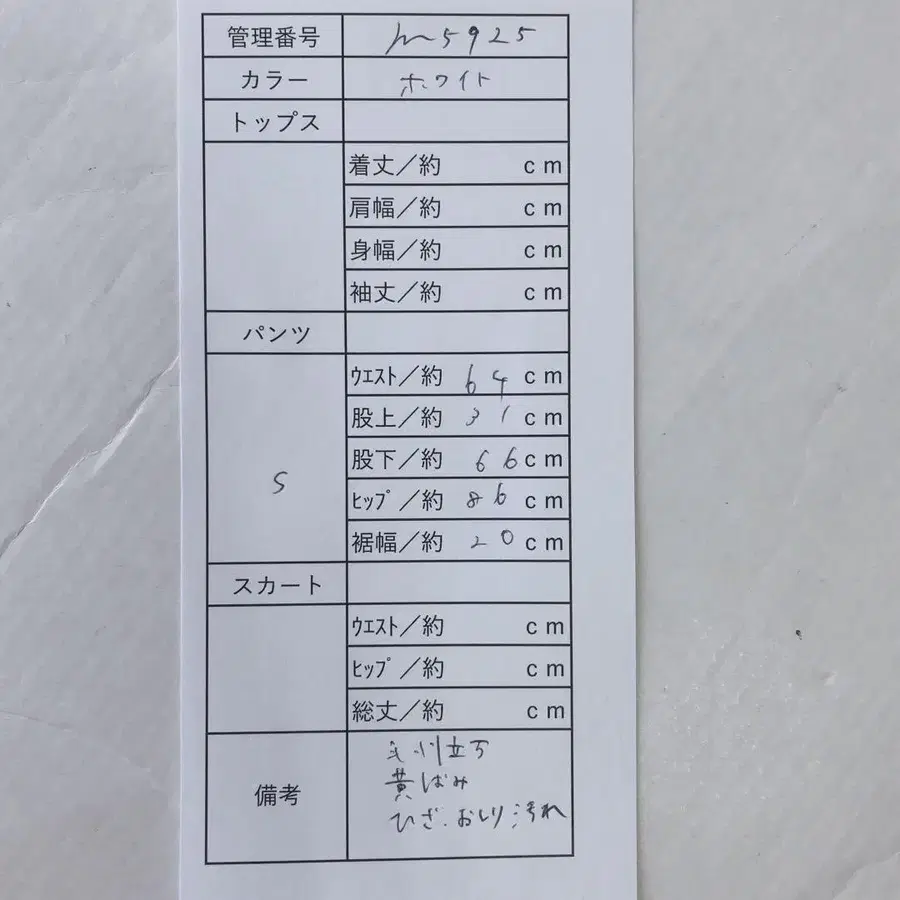 管理番号 m5925
カラー ホワイト
トップス
着丈／約 cm
肩幅／約 cm
身幅／約 cm
袖丈／約 cm
パンツ
S
ウエスト／約 64 cm
股上／約 31 cm
股下／約 66 cm
ヒップ／約 86 cm
裾幅／約 20 cm
スカート
ウエスト／約 cm
ヒップ／約 cm
総丈／約 cm
備考
毛羽立ち
黄ばみ
ひざ.おしり汚れ